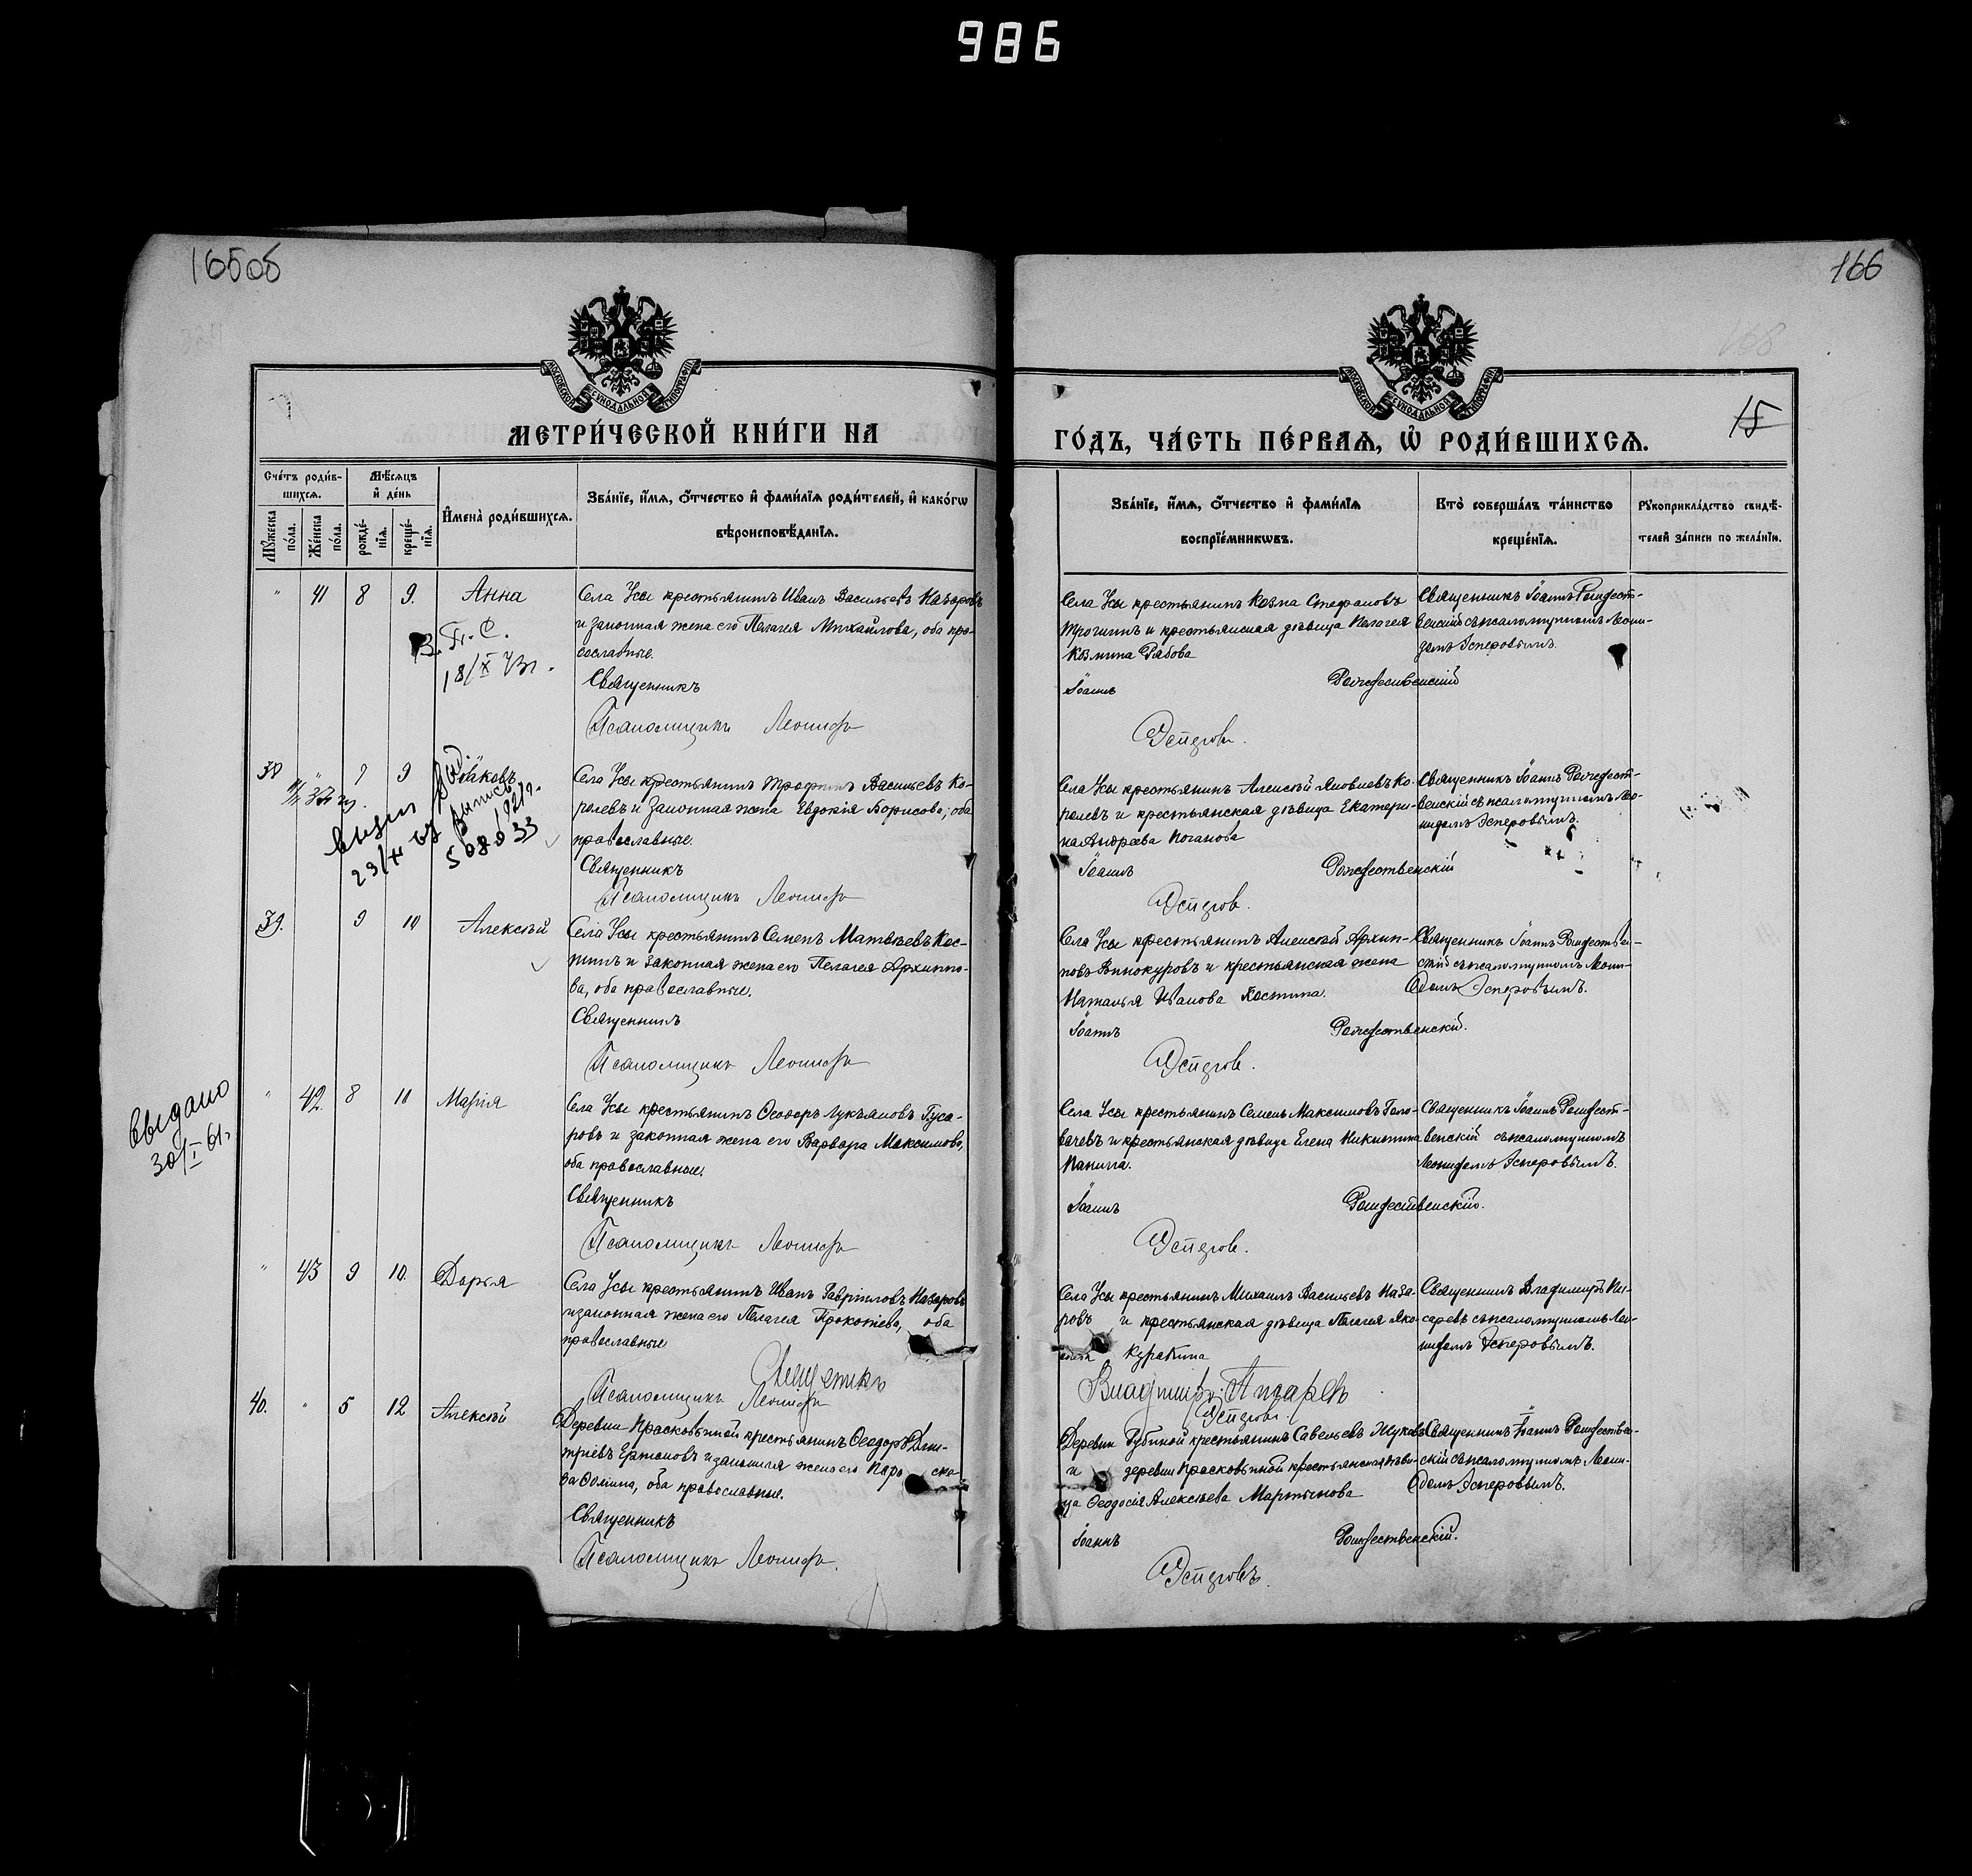 986
165об
166
168
МОСКОВСКОЙ СѴНОДАЛЬНОЙ ТИПОГРАФІИ
МОСКОВСКОЙ СѴНОДАЛЬНОЙ ТИПОГРАФІИ
15
МЕТРИ́ЧЕСКОЙ КНИ́ГИ НА
ГО́ДЪ, ЧА́СТЬ ПЕ́РВАѦ, Ѡ҆ РОДИ́ВШИХСѦ.
Сче́тъ роди́в-
шихсѧ.
Мѣ́сѧцъ
и҆ де́нь
Мꙋ́жеска
по́ла.
Же́нска
по́ла.
рожде́-
нїѧ.
креще́-
нїѧ.
И҆мена̀ роди́вшихсѧ.
Зва́нїе, и҆́мѧ, ѻ҆́тчество и҆ фами́лїѧ роди́телей, и҆ како́гѡ
вѣроисповѣ́данїѧ.
Зва́нїе, и҆́мѧ, ѻ҆́тчество и҆ фами́лїѧ
воспрїе́мникѡвъ.
Кто̀ соверша́лъ та́инство
креще́нїѧ.
Рꙋкоприкла́дство свидѣ́-
телей за́писи по жела́нїю.
" 41 8 9. Анна
Села Усы крестьянинъ Иванъ Васильевъ Назаровъ
и законная жена его Пелагея Михайлова, оба пра-
вославные.
Священникъ
Псаломщикъ Леонидъ
18/X 73г.
Села Усы крестьянинъ Козма Стефановъ
Трогинъ и крестьянская дѣвица Пелагея
Козмина Рябова
Іоаннъ Рождественскій
Эсперовъ.
Священникъ Іоаннъ Рождест-
венскій съ псаломщикомъ Леони-
домъ Эсперовымъ.
38 " 7 9 Іаковъ
508033
Села Усы крестьянинъ Трофимъ Васильевъ Ко-
ролевъ и законная жена Евдокія Борисова, оба
православные.
Священникъ
Псаломщикъ Леонидъ
Села Усы крестьянинъ Алексѣй Яковлевъ Ко-
ролевъ и крестьянская дѣвица Екатери-
на Андреева Коганова
Іоаннъ Рождественскій
Эсперов.
Священникъ Іоаннъ Рождест-
венскій съ псаломщикомъ Лео-
нидомъ Эсперовымъ.
39. 9 10 Алексѣй
Села Усы крестьянинъ Семенъ Матвѣевъ Кос-
тинъ и законная жена его Пелагея Архиппо-
ва, оба православные.
Священникъ
Псаломщикъ Леонидъ
Села Усы крестьянинъ Алексѣй Архип-
повъ Винокуровъ и крестьянская жена
Наталья Иванова Костина.
Іоаннъ Рождественскій.
Эсперов.
Священникъ Іоаннъ Рождествен-
скій съ псаломщикомъ Леони-
домъ Эсперовымъ.
Выдано
30/I 61г.
" 42. 8 10 Марія
Села Усы крестьянинъ Ѳеодоръ Лукьяновъ Гуса-
ровъ и законная жена его Варвара Максимова,
оба православные.
Священникъ
Псаломщикъ Леонидъ
Села Усы крестьянинъ Семенъ Максимовъ Голо-
вачевъ и крестьянская дѣвица Елена Никитина
Панина.
Іоаннъ Рождественскій.
Эсперов.
Священникъ Іоаннъ Рождест-
венскій съ псаломщикомъ
Леонидомъ Эсперовымъ.
" 43 9 10. Дарья
Села Усы крестьянинъ Иванъ Гавріиловъ Назаровъ
и законная жена его Пелагея Прокопіева, оба
православные
Священникъ
Псаломщикъ Леонидъ
Села Усы крестьянинъ Михаилъ Васильевъ Наза-
ровъ и крестьянская дѣвица Пелагея Яко-
Куракина
Владиміръ Писаревъ
Эсперовъ
Священникъ Владиміръ Пи-
саревъ съ псаломщикомъ Лео-
нидомъ Эсперовымъ.
40. " 5 12 Алексѣй
Деревни Прасковьиной крестьянинъ Ѳеодоръ Дми-
тріевъ Ермаковъ и законная жена его Параске-
ва Ѳомина, оба православные.
Священникъ
Псаломщикъ Леонидъ.
Деревни Губиной крестьянинъ Савельевъ Жуковъ
и деревни Прасковьиной крестьянская дѣви-
ца Ѳеодосія Алексѣева Мартынова
Іоаннъ Рождественскій.
Эсперовъ.
Священникъ Іоаннъ Рождествен-
скій съ псаломщикомъ Леони-
домъ Эсперовымъ.